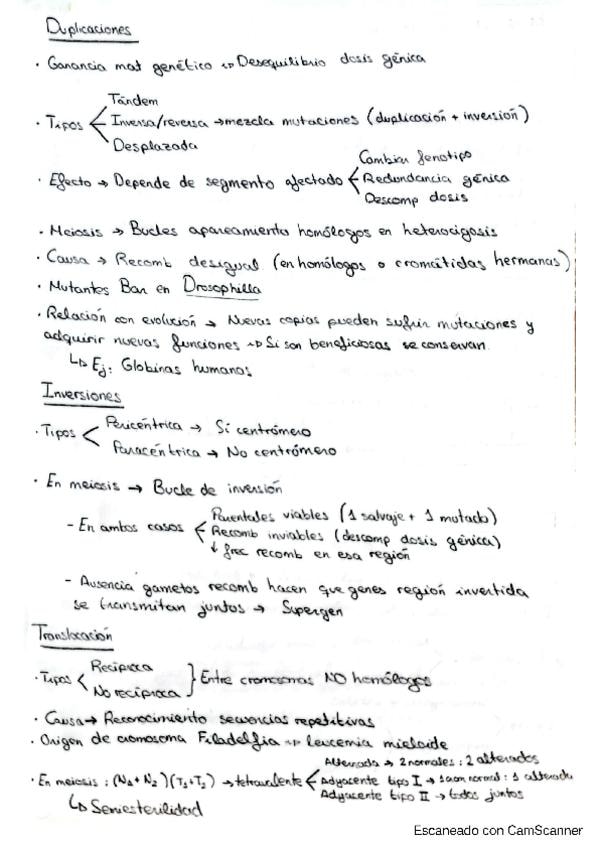 Duplicaciones
· Ganancia mat genético ⇝ Desequilibrio dosis génica
Tándem
· Tipos < Inversa/reversa → mezcla mutaciones (duplicación + inversión)
Desplazada
Cambiar fenotipo
· Efecto → Depende de segmento afectado < Redundancia génica
Descomp dosis
· Meiosis → Bucles apareamiento homólogos en heterocigosis
· Causa → Recomb desigual (en homólogos o cromátidas hermanas)
· Mutantes Bar en Drosophilla
· Relación con evolución → Nuevas copias pueden sufrir mutaciones y
adquirir nuevas funciones ⇝ Si son beneficiosas se conservan.
↳ Ej: Globinas humanas
Inversiones
Pericéntrica → Sí centrómero
· Tipos <
Paracéntrica → No centrómero
· En meiosis → Bucle de inversión
Parentales viables (1 salvaje + 1 mutado)
- En ambos casos < Recomb inviables (descomp dosis génica)
↓ frec recomb en esa región
- Ausencia gametos recomb hacen que genes región invertida
se transmitan juntos → Supergen
Translocación
Recíproca
· Tipos < } Entre cromosomas NO homólogos
No recíproca
· Causa → Reconocimiento secuencias repetitivas
· Origen de cromosoma Filadelfia ⇝ leucemia mieloide
Alternada → 2 normales : 2 alterados
· En meiosis : (N₁ + N₂) (T₁ + T₂) → tetravalente < Adyacente tipo I → 1 con normal : 1 alterado
Adyacente tipo II → todos juntos
↳ Semiesterilidad
Escaneado con CamScanner